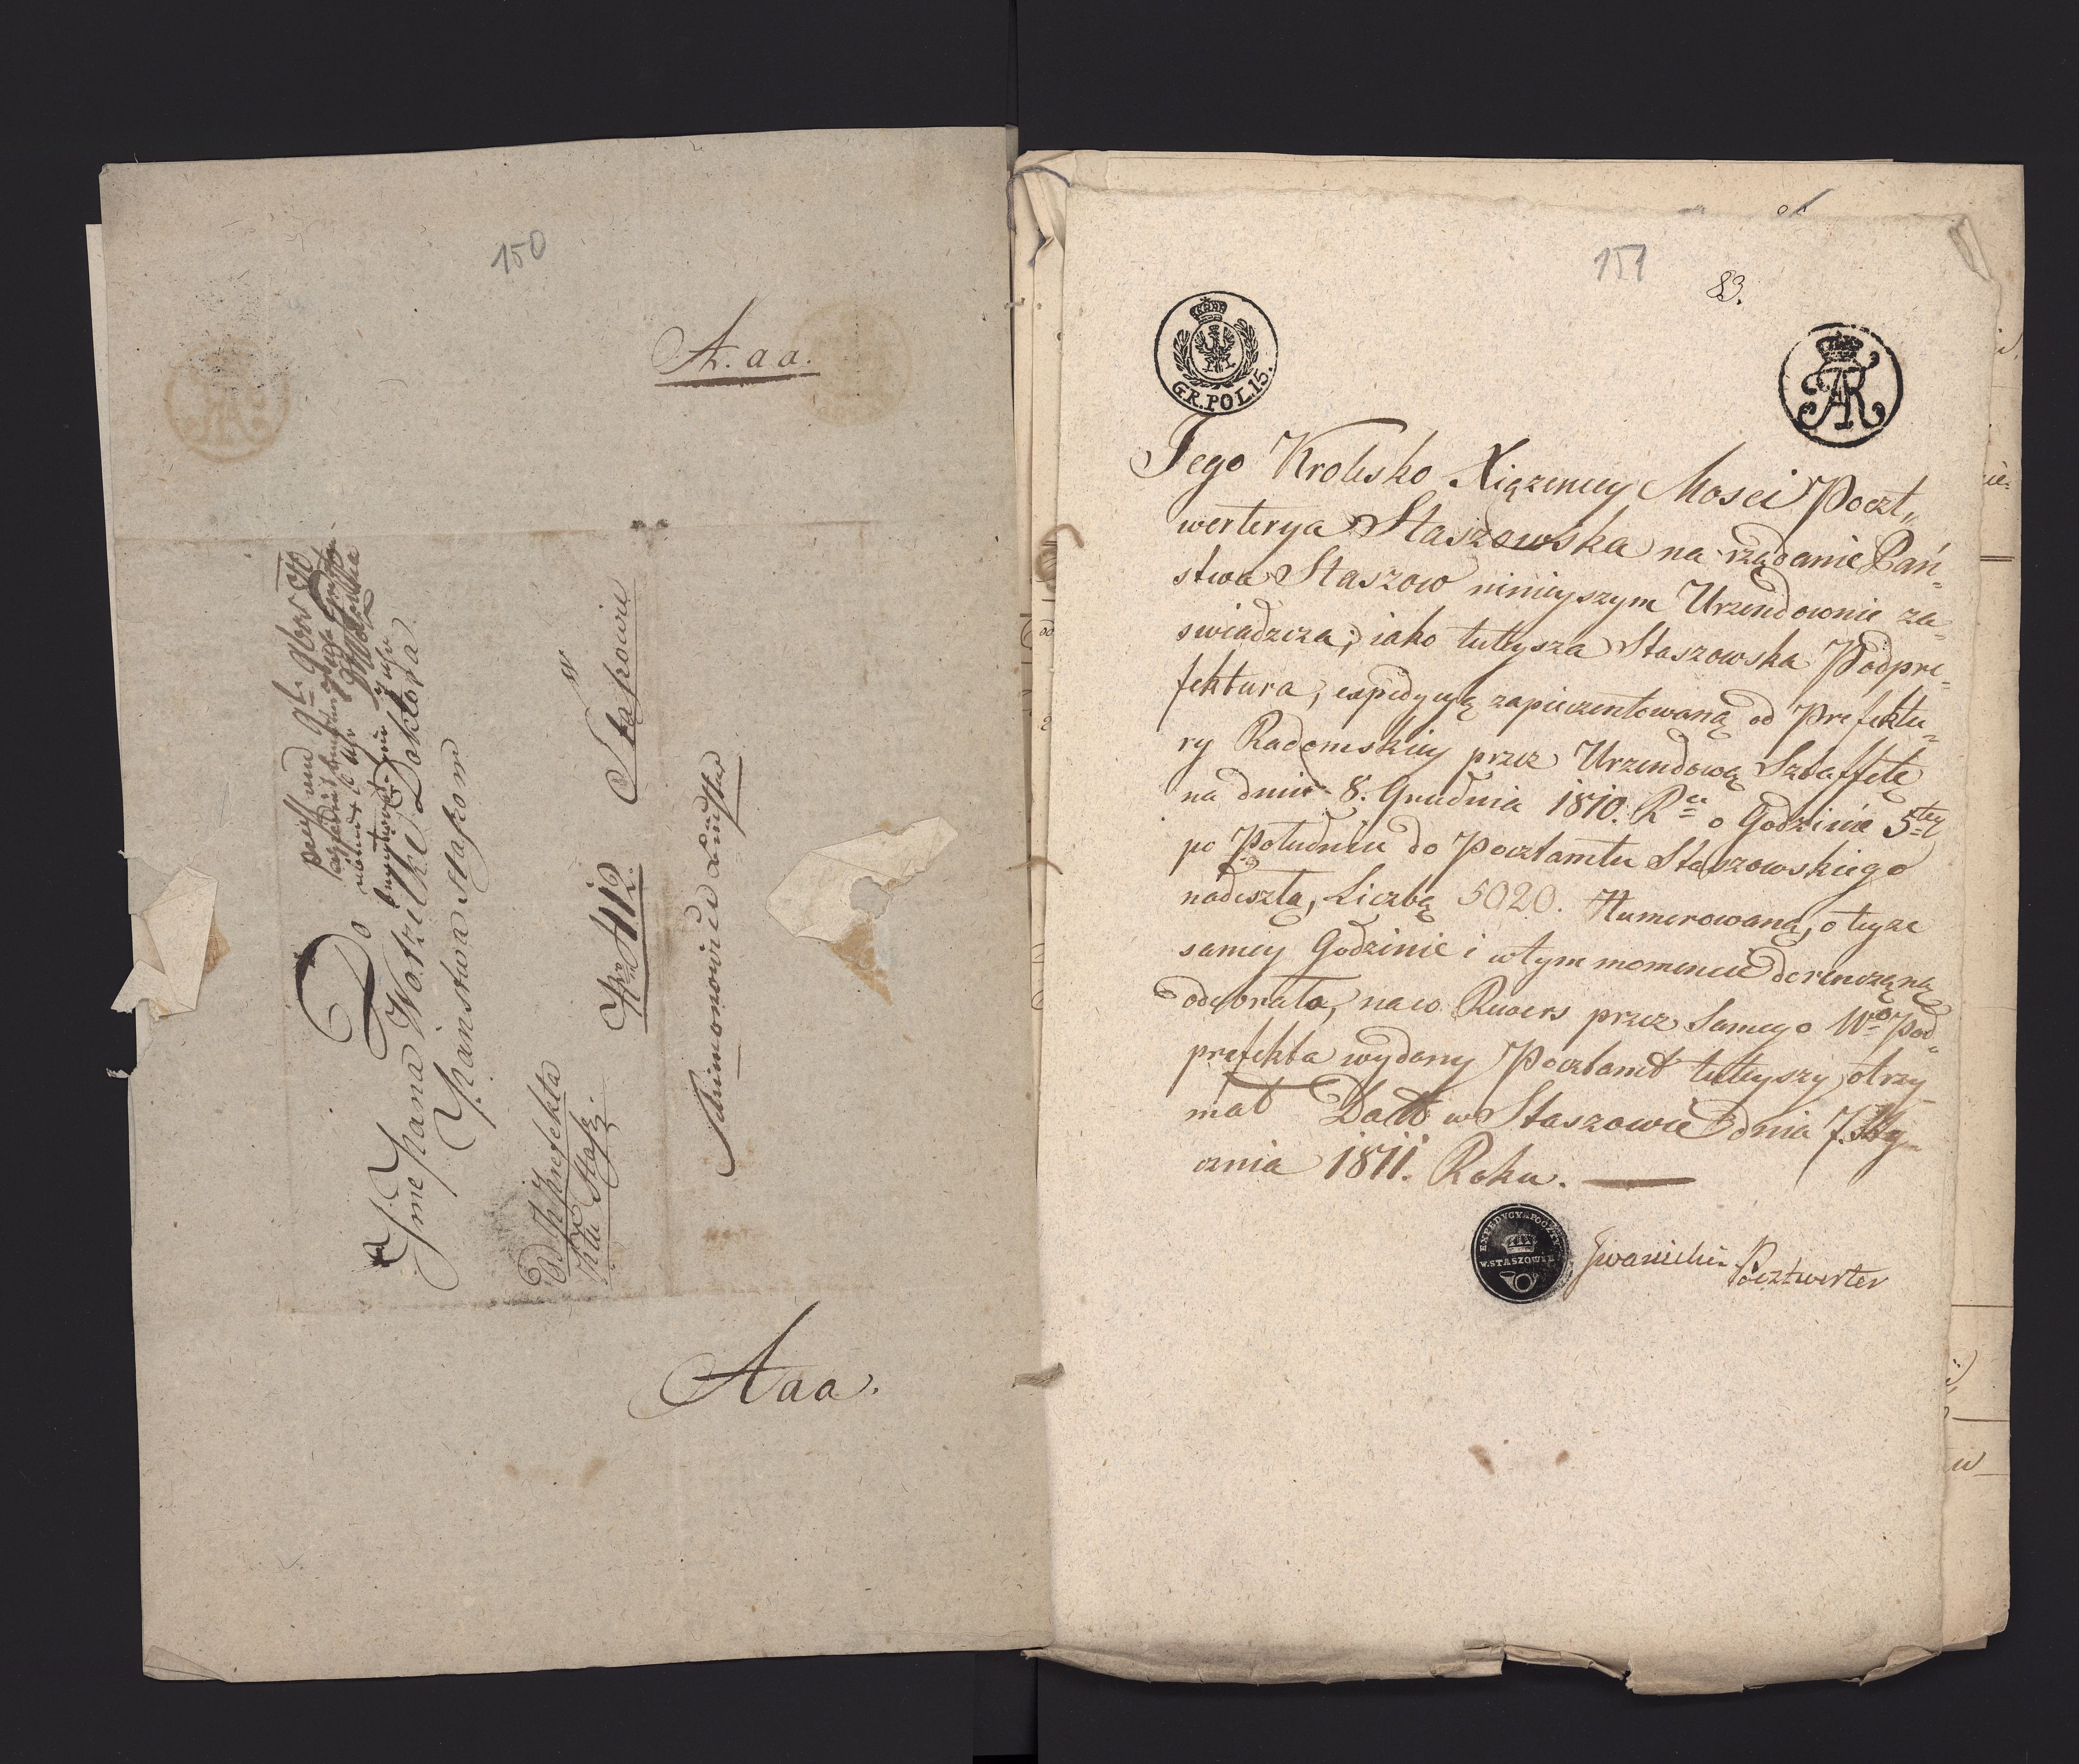 150
A. a a.
Do
Jme Pana Watzelke Doktora
Panstwa Staszow
w
Staszowie
Od PPrefekta
Ptu Stasz.
Nro 412
Aaa.
151
83.
GR.POL.15.
AR
Jego Krolesko Xiązencey Mosci Poczt„
werterya Staszowska na rządanie Pań„
stwa Staszow ninieyszym Urzendownie za„
swiadzcza; iako tuteysza Staszowska Podpre„
fektura, expedycyą zapieczentowaną od Prefektu„
ry Radomskiey przez Urzendową Sztaffetę
na dniu 8. Grudnia 1810. Ru o Godzinie 5tey
po Południu do Pocztamtu Staszowskiego
nadeszłą, Liczbą 5020. Numerowaną, o teyze
samey Godzinie i w tym momencie dorenczaną
odebrała, na co Rewers przez Samego Wo Pod„
prefekta wydany Pocztamt tuteyszy otrzy„
mał Datt w Staszowie dnia 7. Sty„
cznia 1811. Roku.
EXPEDYCYA POCZTY
W. STASZOWIE
Iwanicki Pocztwerter